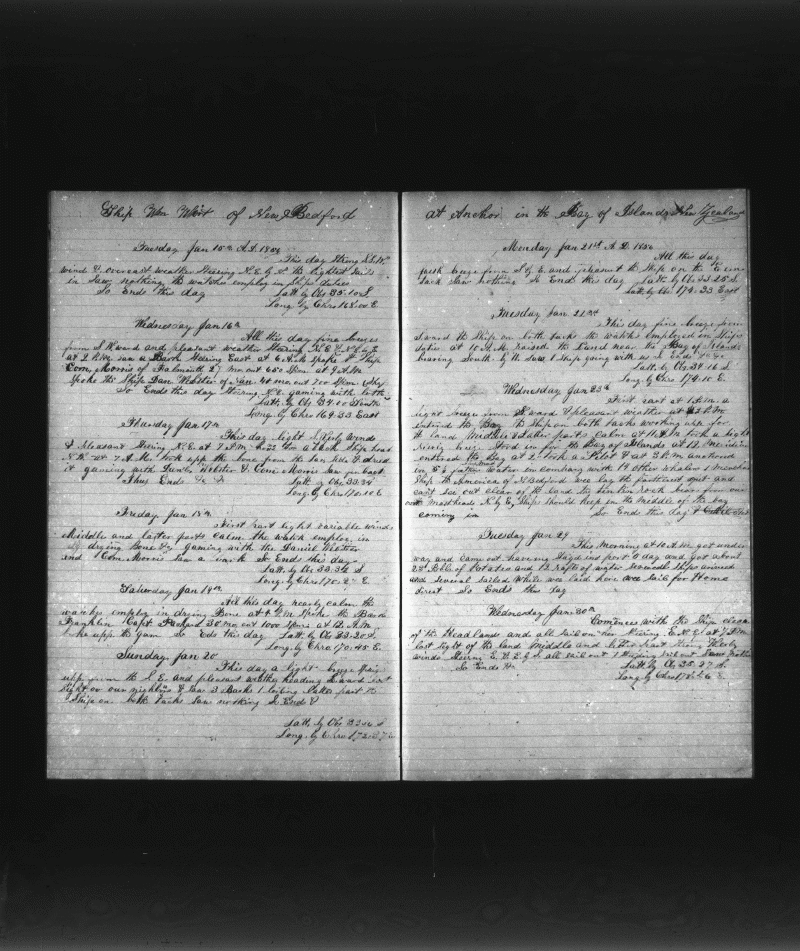 Ship Wm Wirt of New Bedford
Tuesday Jan 15th A.D. 1850
This day strong N.W.
wind & overcast weather Steering N.E. by
in saw nothing the watches employ in Ships duties
So Ends this day Latt. by Obs 35.10 S
Long. by Chro 168.00 E
Wednesday Jan 16th
All this day fine breezes
from S.W.ward and pleasant weather Steering N.E. & N.E. by E
at 2 P.M. saw a Bark Steering East at 6 A.M. Spoke the Ship
Com. Morris of Falmouth 27 mo out 650 Spm. at 9 A.M.
Spoke the Ship Dan Webster of Nan. 40 mo. out 700 Spm.
So Ends this day Steering N.E. gaming with both
Latt. by Obs 34.00 South
Long. by Chro 169.33 East
Thursday Jan 17th
This day light winds
& pleasant Steering N.E. at 7 P.M. a Ship head
N.W. at 7 A.M. took upp the bone from the & dried
it gaming with Daniel Webster & Com Morris Saw fin back
Thus Ends Latt. by Obs 33.34
Long. by Chro 170.10 E
Friday Jan 18th
First part light variable winds
Middle and latter parts calm the watch employ in
drying Bone & gaming with the Daniel Webster
and Com. Morris Saw a So Ends this day
Latt. by Obs 33.32 S
Long. by Chro 170. E
Saturday Jan 19th
All this day nearly calm the
watches employ in drying Bone at 4 P.M. Spoke the Bark
Franklin Capt. 30 mo out 1000 Spm. at 12 A.M.
upp the gam So Eds this day Latt. by Obs 33.20 S.
Long. by Chro 170.45 E.
Sunday Jan 20
This day a light breeze
upp from the S.E. and pleasant weather heading S.ward
& Saw 3 Barks 1 latter part the
Ship on both tacks Saw nothing So Ends
Latt. by Obs S
Long. by Chro 172.
at Anchor in the Bay of Islands New Zealand
Monday Jan 21st A.D. 1850
All this day
fresh breeze from S by E. and pleasant the Ship on the E.ern
tack Saw nothing So Ends this day Latt. by Obs 33.25 S.
Latt. by Chro 174.33 East
Tuesday Jan 22nd
This day fine breeze from
S.ward the Ship on both tacks the watches employed in Ships
duties at 10 A.M. raised the Land near the Bay of Islands
bearing South by the sun 1 Ship going with us So Ends
Latt. by Obs 34.16 S
Long. by Chro 174.10 E.
Wednesday Jan 23th
First part at 1 P.M. a
light breeze from S.ward & pleasant weather at P.M.
entered the Bay the Ship on both tacks working upp for
the land Middle & latter parts Calm at 11 A.M. took a light
breeze Stood in for the Bay of Islands at 12 Meridian
entered the Bay at 2 took a Pilot & at 3 P.M. anchored
in 5½ fathoms water in company with 14 other whalers 1 merchant
Ship the America of N Bedford we lay the farthest out and
can't see out clear of the land the rock bear from our
mast heads N. by E. Ships should keep in the middle of the bay
coming in So Ends this day
Tuesday Jan 29
This Morning at 10 A.M. got under
way and came out having Stayd ins port 6 day and got about
Bbls of Potatoes and 12 Rafts of water Several Ships arrived
and several Sailed while we laid here we Sail for Home
direct So Ends this day
Wednesday Jan. 30th
Comences with the Ship clear
of the Headlands and all Sail on her Stering E.N.E. at 7 P.M.
lost sight of the land Middle and latter part
winds Sterin E. all sail out 1 Ship
So Ends Latt. by Obs 35.27 S.
Long. by Chro 178. E